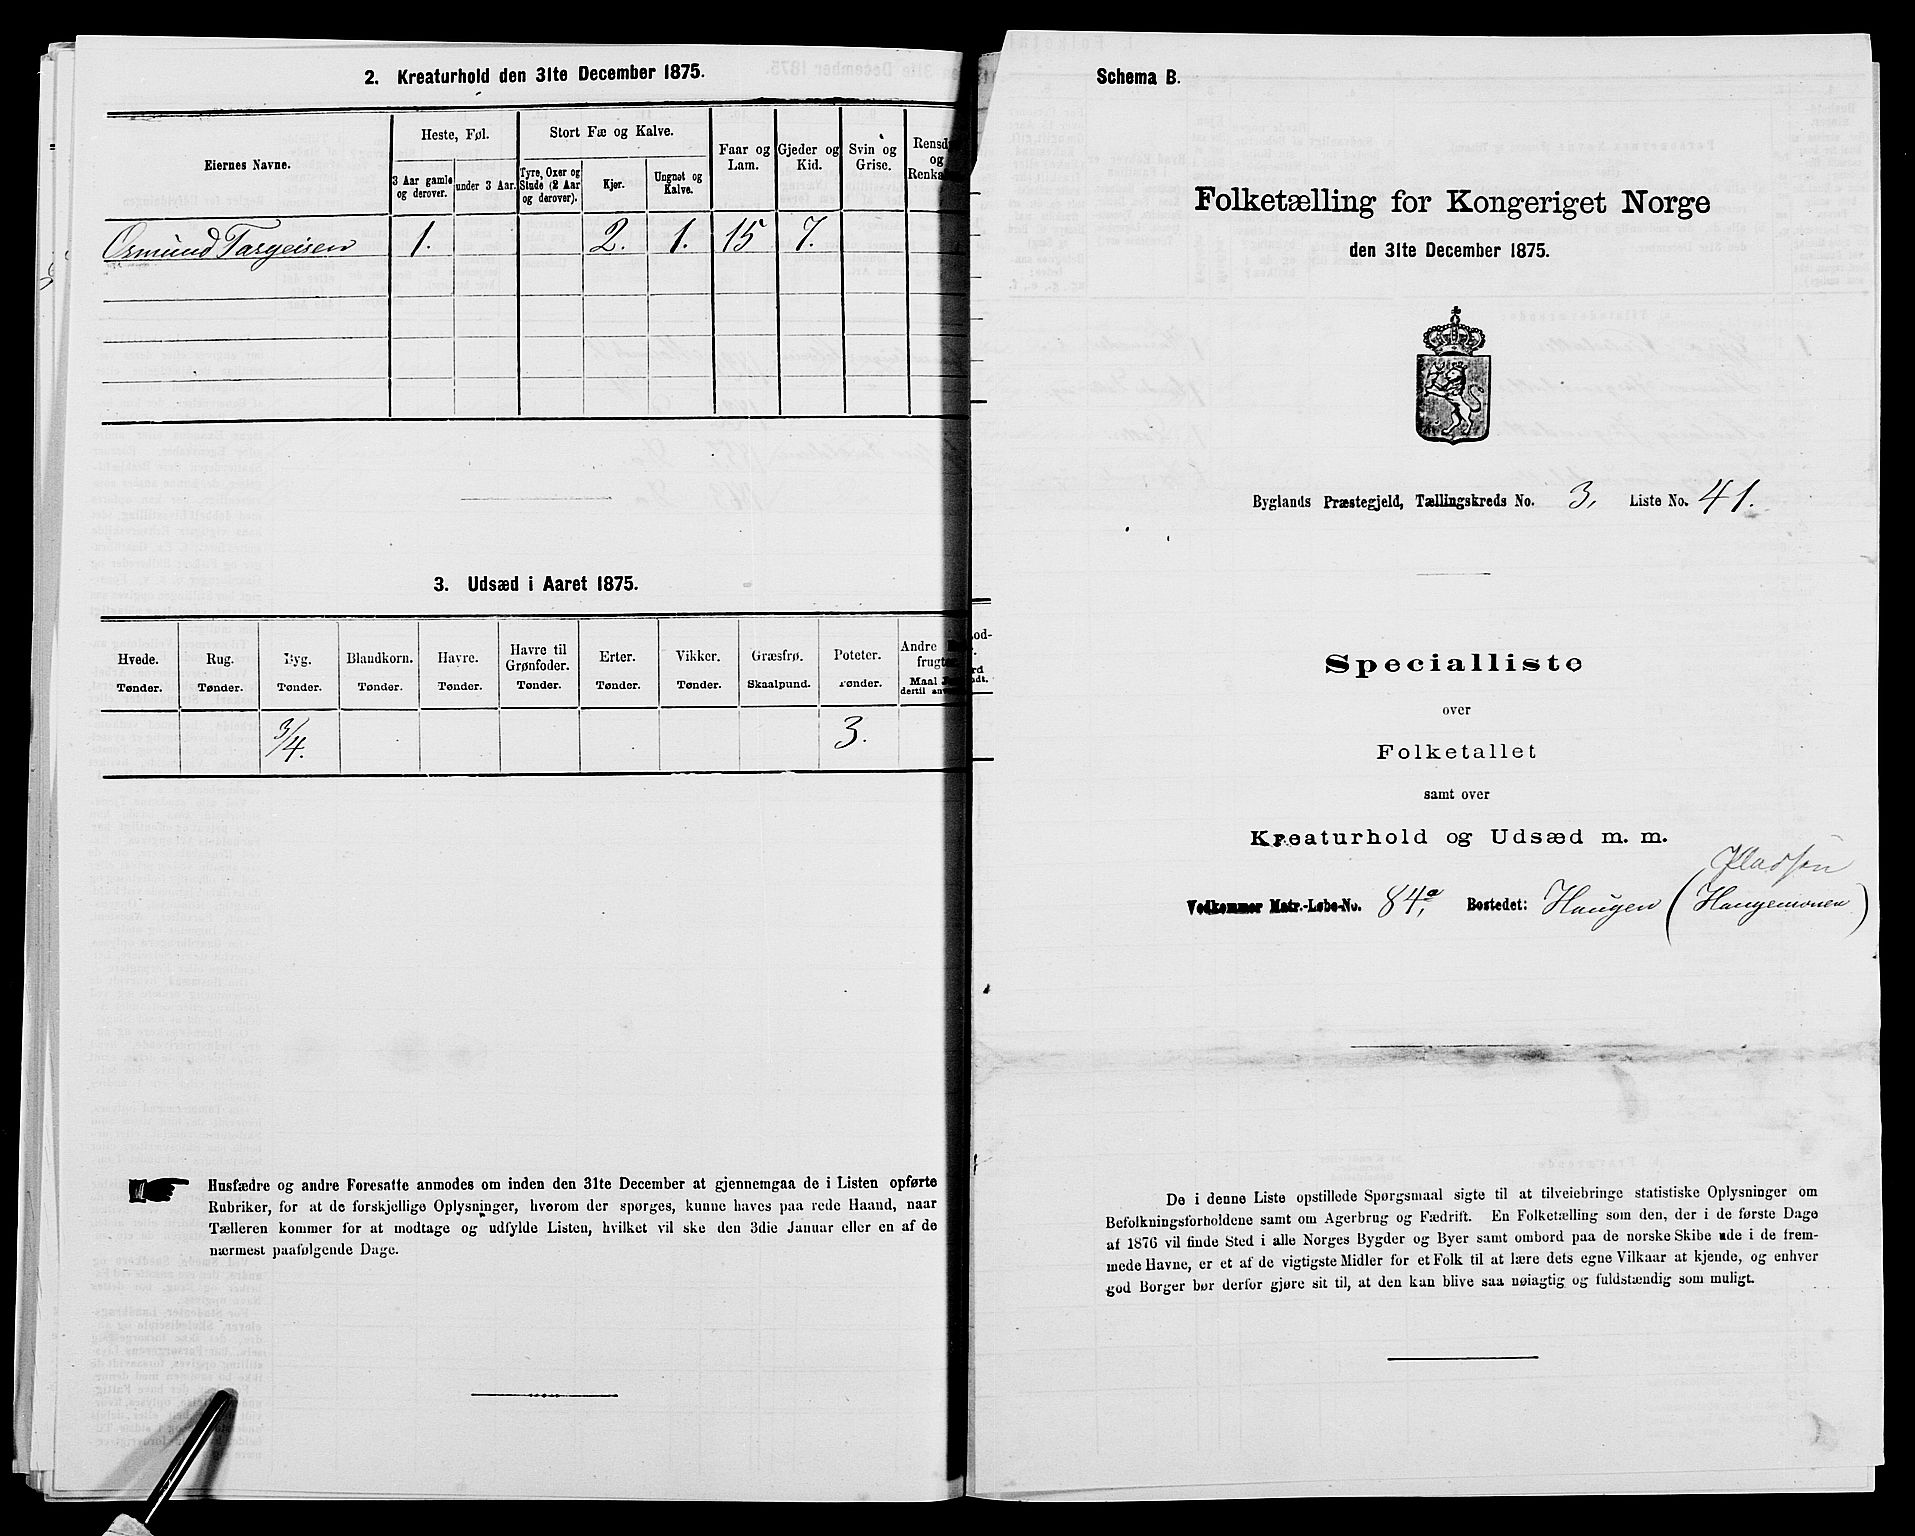 2. Kreaturhold den 31te December 1875.
Eiernes Navne.
Heste, Føl.
Stort Fæ og Kalve.
Faar og
Lam.
Gjeder og
Kid.
Svin og
Grise.
og
3 Aar gamle
og derover.
under 3 Aar.
Tyre, Oxer og
Stude (2 Aar
og derover).
Kjør.
Ungnøt og
Kalve.
Osmund Targeisen 1. 2. 1. 15 7.
3. Udsæd i Aaret 1875.
Hvede. Rug. Byg. Blandkorn. Havre. Havre til Grønfoder. Erter. Vikker. Græsfrø. Poteter. Andre
Tønder. Tønder. Tønder. Tønder. Tønder. Tønder. Tønder. Tønder. Skaalpund. Tønder. Maal
3/4. 3.
Husfædre og andre Foresatte anmodes om inden den 31te December at gjennemgaa de i Listen opførte
Rubriker, for at de forskjellige Oplysninger, hvorom der spørges, kunne haves paa rede Haand, naar
Tælleren kommer for at modtage og udfylde Listen, hvilket vil ske den 3die Januar eller en af de
nærmest paafølgende Dage.
Schema B.
Folketælling for Kongeriget Norge
den 31te December 1875.
Byglands Præstegjeld, Tællingskreds No. 3, Liste No. 41.
Specialliste
over
Folketallet
samt over
Kreaturhold og Udsæd m. m.
Pladsen
Vedkommer Matr.-Løbe-No. 84a, Bostedet: Haugen (Haugemonen)
De i denne Liste opstillede Spørgsmaal sigte til at tilveiebringe statistiske Oplysninger om
Befolkningsforholdene samt om Agerbrug og Fædrift. En Folketælling som den, der i de første Dage
af 1876 vil finde Sted i alle Norges Bygder og Byer samt ombord paa de norske Skibe ude i de frem-
mede Havne, er et af de vigtigste Midler for et Folk til at lære dets egne Vilkaar at kjende, og enhver
god Borger bør derfor gjøre sit til, at den kan blive saa nøiagtig og fuldstændig som muligt.